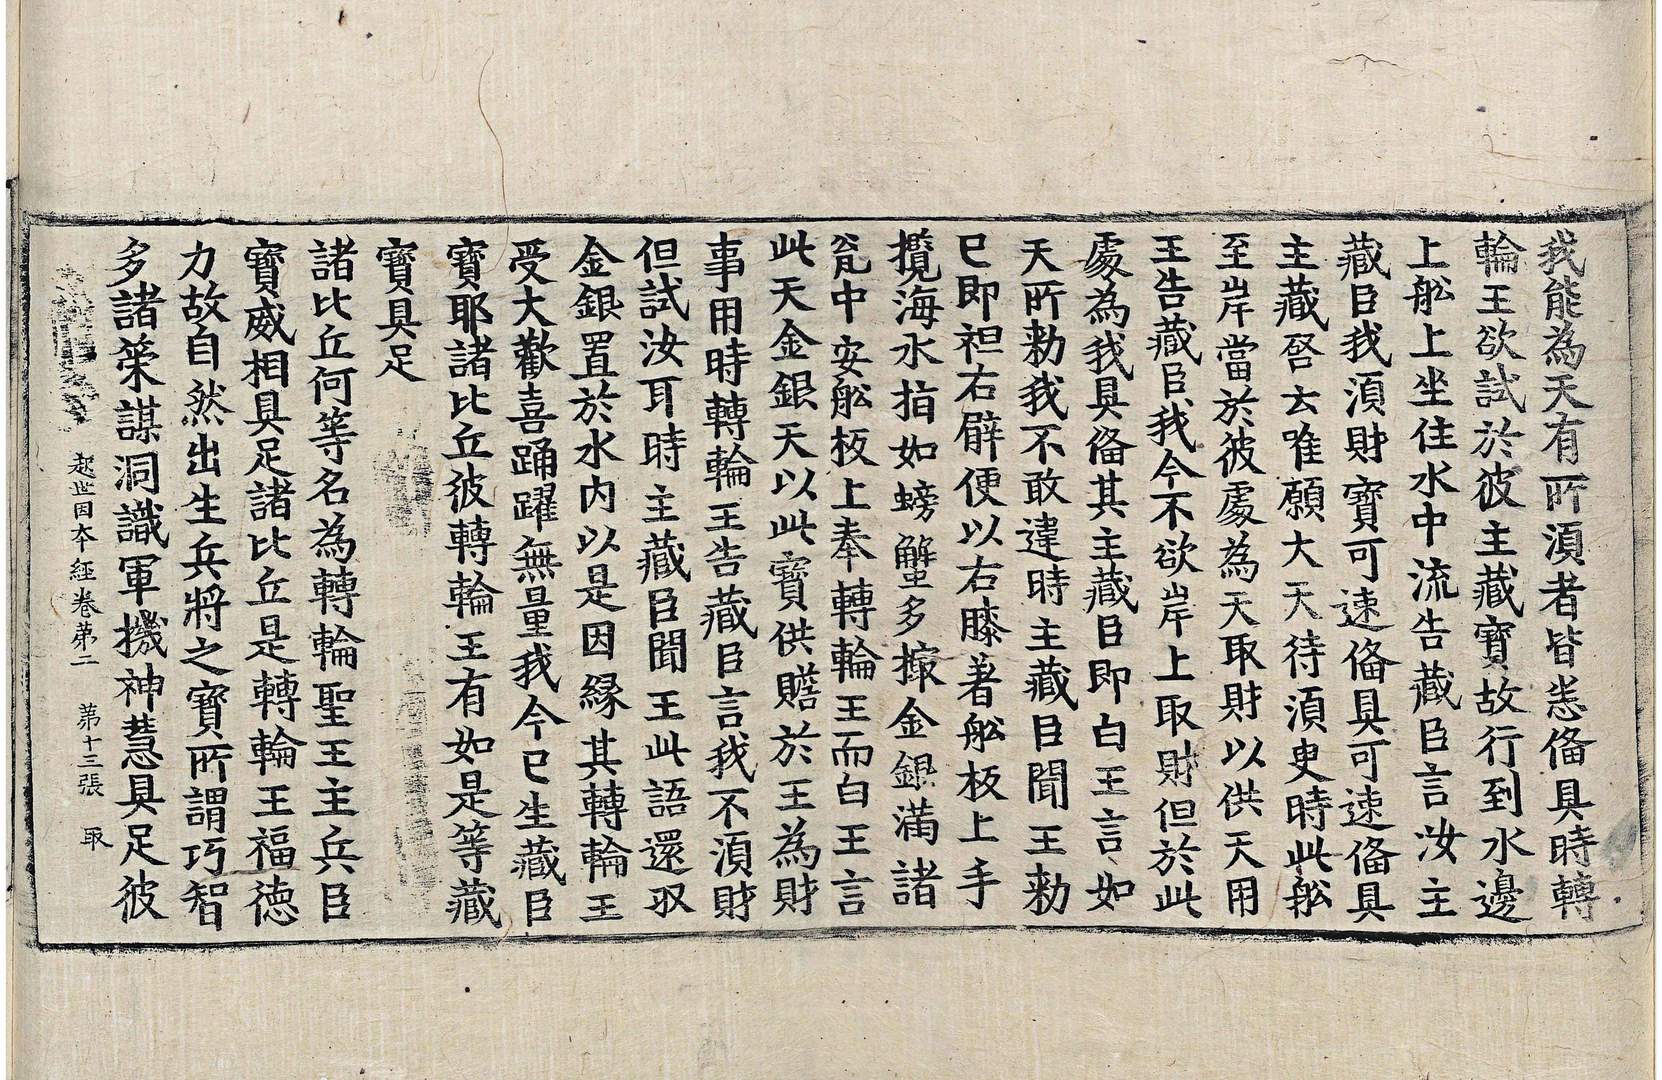 我能為天有所湏者皆悉俻具時轉
輪王欲試於彼主藏寶故行到水邊
上舩上坐住水中流告藏臣言汝主
藏臣我湏財寶可速俻具可速俻具
主藏啓言唯願大天待湏臾時此舩
至岸當於彼處為天取財以供天用
王告藏臣我今不欲岸上取財但於此
處為我具俻其主藏臣即白王言如
天所勑我不敢違時主藏臣聞王勑
已即袒右臂便以右膝著舩板上手
攪海水指如螃蟹多撮金銀滿諸
瓮中安舩板上奉轉輪王而白王言
此天金銀天以此寶供贍於王為財
事用時轉輪王告藏臣言我不湏財
但試汝耳時主藏臣聞王此語還収
金銀置於水內以是因緣其轉輪王
受大歡喜踊躍無量我今已生藏臣
寶耶諸比丘彼轉輪王有如是等藏
寶具足
諸比丘何等名為轉輪聖王主兵臣
寶威相具足諸比丘是轉輪王福德
力故自然出生兵將之寶所謂巧智
多諸策謀洞識軍機神慧具足彼
起世因本經卷第二 第十三張 取